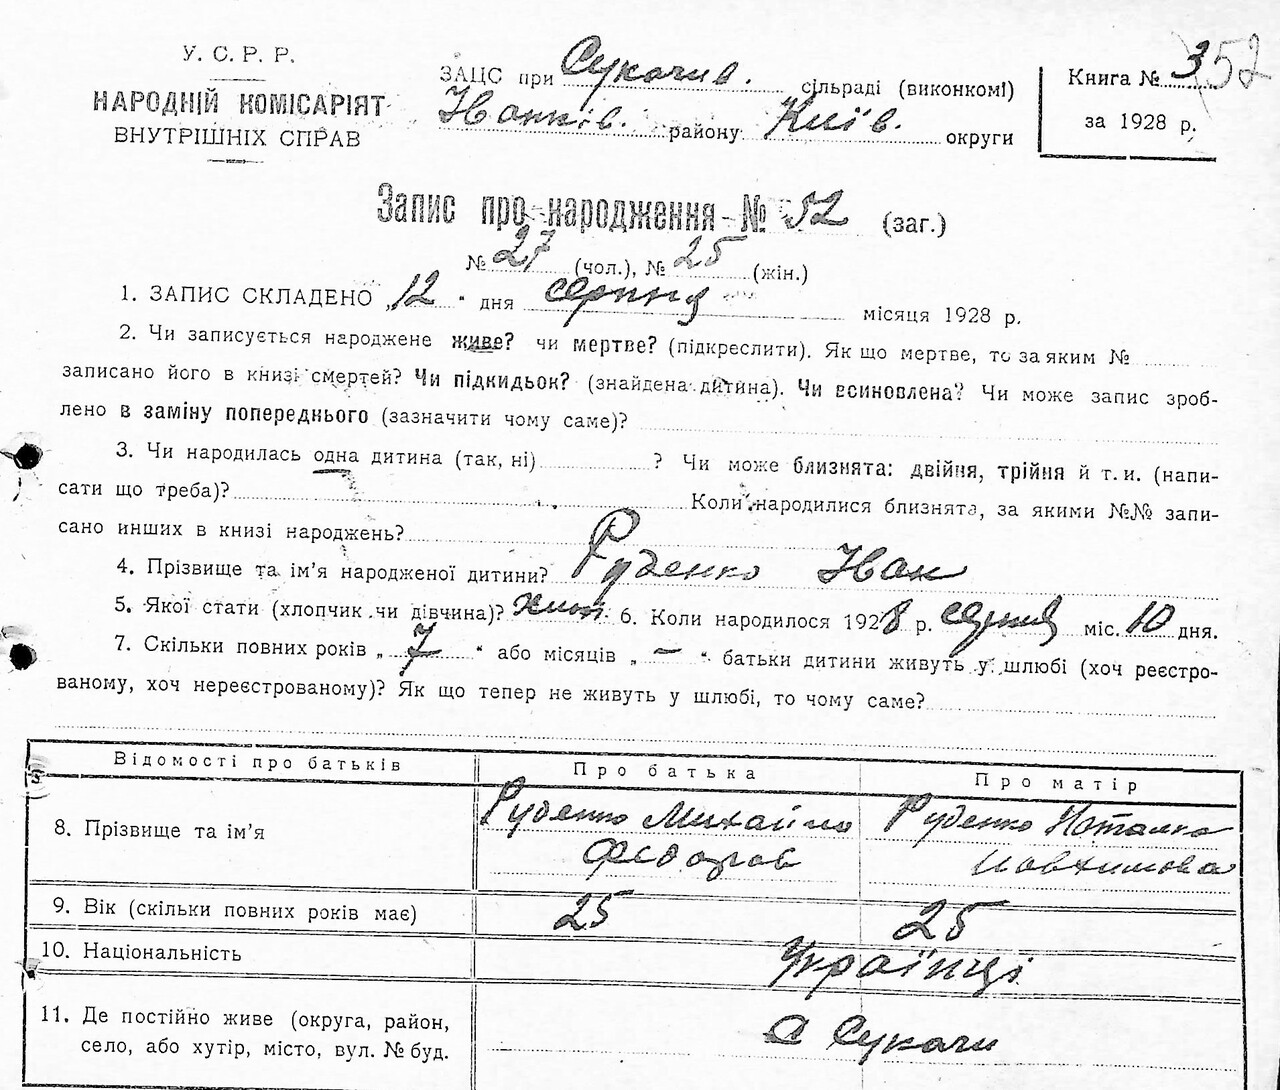 У. С. Р. Р.
НАРОДНІЙ КОМІСАРІЯТ
ВНУТРІШНІХ СПРАВ
ЗАЦС при Сукачив. сільраді (виконкомі)
Іванків. району Київ. округи
Книга № 3 52
за 1928 р.
Запис про народження № 52 (заг.)
№ 27 (чол.), № 25 (жін.)
1. ЗАПИС СКЛАДЕНО „12“ дня серпня місяця 1928 р.
2. Чи записується народжене живе? чи мертве? (підкреслити). Як що мертве, то за яким №
записано його в книзі смертей? Чи підкидьок? (знайдена дитина). Чи всиновлена? Чи може запис зроб-
лено в заміну попереднього (зазначити чому саме)?
3. Чи народилась одна дитина (так, ні) ? Чи може близнята: двійня, трійня й т. и. (напи-
сати що треба)? Коли народилися близнята, за якими №№ запи-
сано инших в книзі народжень?
4. Прізвище та ім’я народженої дитини? Руденко Іван
5. Якої стати (хлопчик чи дівчина)? хлоп. 6. Коли народилося 1928 р. серпня міс. 10 дня.
7. Скільки повних років „ 7 “ або місяців „ — “ батьки дитини живуть у шлюбі (хоч реєстро-
ваному, хоч нереєстрованому)? Як що тепер не живуть у шлюбі, то чому саме?
Відомості про батьків Про батька Про матір
8. Прізвище та ім’я Руденко Михайло Руденко Наталка
Федоров Йовхимова
9. Вік (скільки повних років має) 25 25
10. Національність Українці
11. Де постійно живе (округа, район,
село, або хутір, місто, вул. № буд. С Сукачи